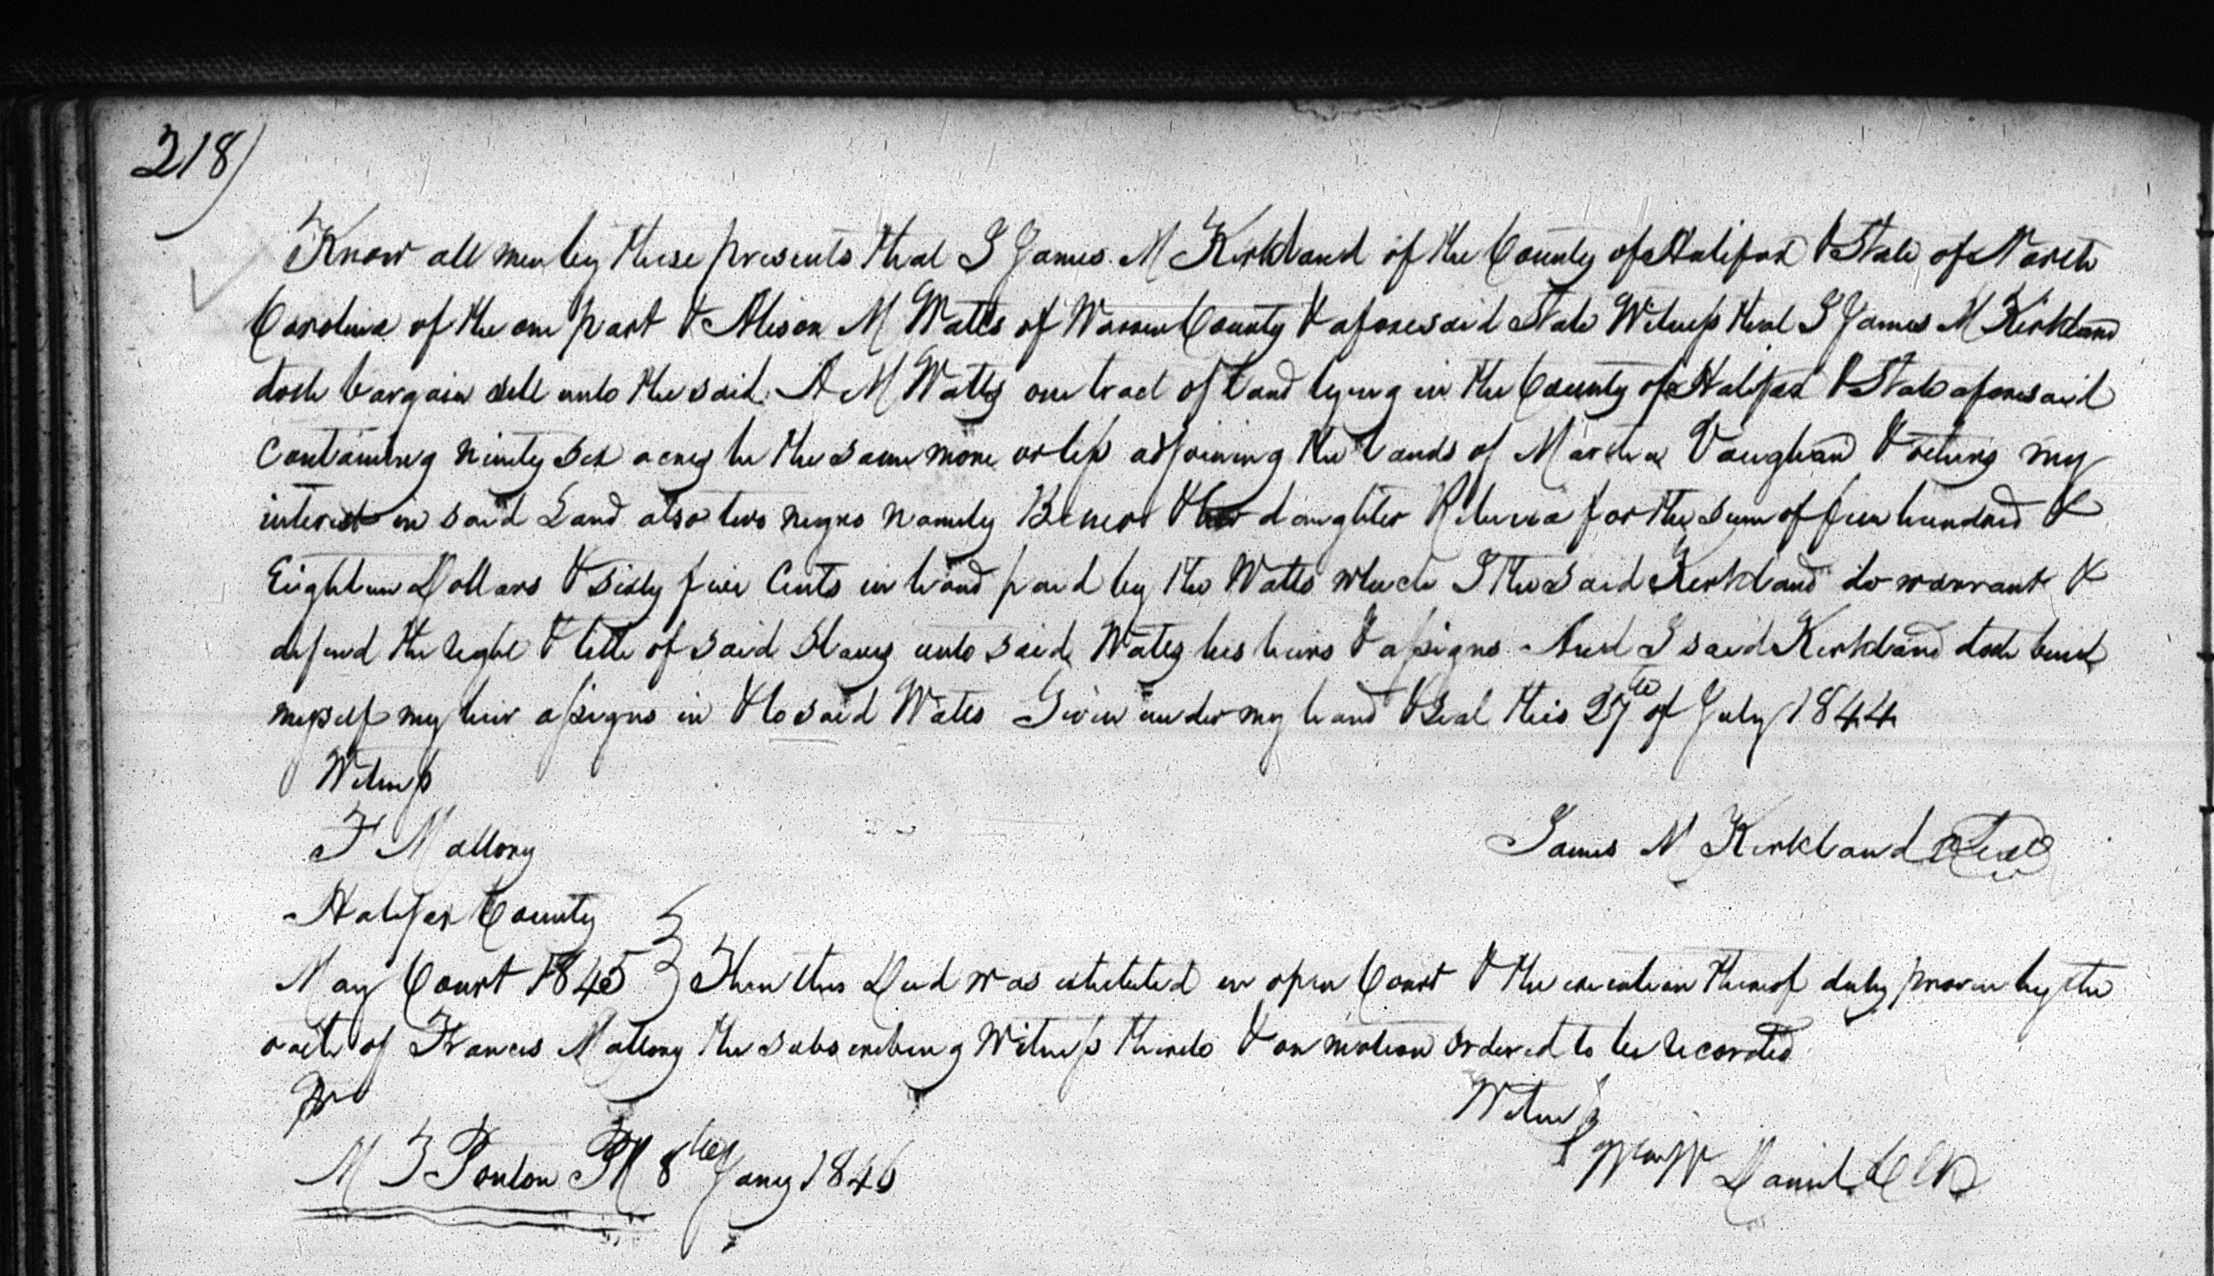 218)
Know all men by these presents that I James M Kirkland of the County of Halifax & State of North
Carolina of the one part & Alison M Watts of Warren County & aforesaid State Witness that I James M Kirkland
doth bargain sell unto the said A M Watts one tract of Land lying in the County of Halifax & State aforesaid
containing ninety six acres be the same more or less adjoining the lands of Martha Vaughan & others my
interest in said Land also two negro namely & her daughter for the sum of five hundred &
Eighteen Dollars & sixty five Cents in hand paid by the Watts which I the said Kirkland do warrant &
defend the right & title of said Slaves unto said Watts his heirs & assigns And I said Kirkland doth bind
myself my heir assigns in & to said Watts Given under my hand & Seal this 27th of July 1844
Witness
F Mallory
James M Kirkland Seal
Halifax County
May Court 1845 } Then this Deed was exhibited in open Court & the execution thereof duly proven by the
oath of Francis Mallory the subscribing Witness thereto & on motion ordered to be recorded
Witness
M T Ponton PR 8th Jany 1846
Wm W Daniel Clk